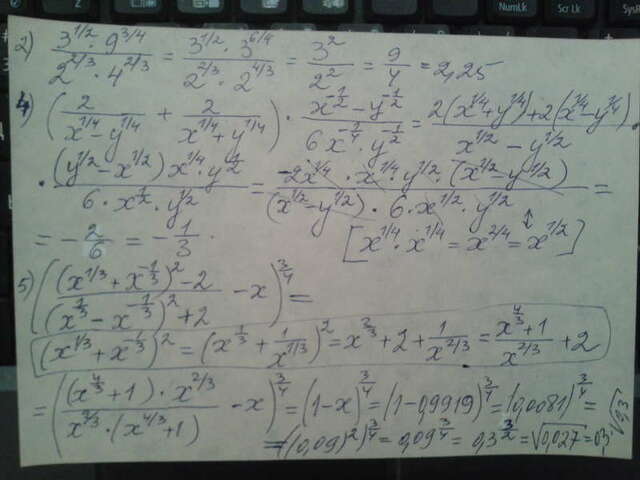 NumLk
Scr Lk
Sys
2) (3^{1/2} · 9^{3/4}) / (2^{2/3} · 4^{2/3}) = (3^{1/2} · 3^{6/4}) / (2^{2/3} · 2^{4/3}) = 3^2 / 2^2 = 9/4 = 2,25
4) (2 / (x^{1/4} - y^{1/4}) + 2 / (x^{1/4} + y^{1/4})) · (x^{-1/2} - y^{-1/2}) / (6x^{-1/4} · y^{-1/2}) = (2(x^{1/4} + y^{1/4}) + 2(x^{1/4} - y^{1/4})) / (x^{1/2} - y^{1/2}) ·
· ((y^{1/2} - x^{1/2}) x^{1/4} · y^{1/2}) / (6 · x^{1/2} · y^{1/2}) = (-2x^{1/4} · x^{1/4} · y^{1/2} · (x^{1/2} - y^{1/2})) / ((x^{1/2} - y^{1/2}) · 6 · x^{1/2} · y^{1/2}) =
= -2/6 = -1/3 · [x^{1/4} · x^{1/4} = x^{2/4} = x^{1/2}]
5) (((x^{1/3} + x^{-1/3})^2 - 2) / ((x^{1/3} - x^{-1/3})^2 + 2) - x)^{3/4} =
(x^{1/3} + x^{-1/3})^2 = (x^{1/3} + 1/x^{1/3})^2 = x^{2/3} + 2 + 1/x^{2/3} = (x^{4/3} + 1) / x^{2/3} + 2
= (((x^{4/3} + 1) · x^{2/3}) / (x^{2/3} · (x^{4/3} + 1)) - x)^{3/4} = (1 - x)^{3/4} = (1 - 0,9919)^{3/4} = (0,0081)^{3/4} =
= ((0,09)^2)^{3/4} = 0,09^{3/4} = 0,3^{3/2} = √0,027 = 0,3√0,3